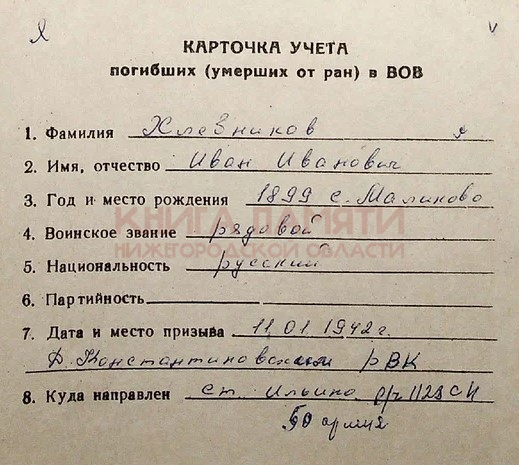 Х
v
КАРТОЧКА УЧЕТА
погибших (умерших от ран) в ВОВ
1. Фамилия Хлевников
2. Имя, отчество Иван Иванович
3. Год и место рождения 1899 с. Малиново
КНИГА ПАМЯТИ
4. Воинское звание рядовой
НИЖЕГОРОДСКОЙ ОБЛАСТИ
5. Национальность русский
6. Партийность
7. Дата и место призыва 11.01.1942г.
Д. Константиновским РВК
8. Куда направлен ст. Ильино 1123 СП
50 армия